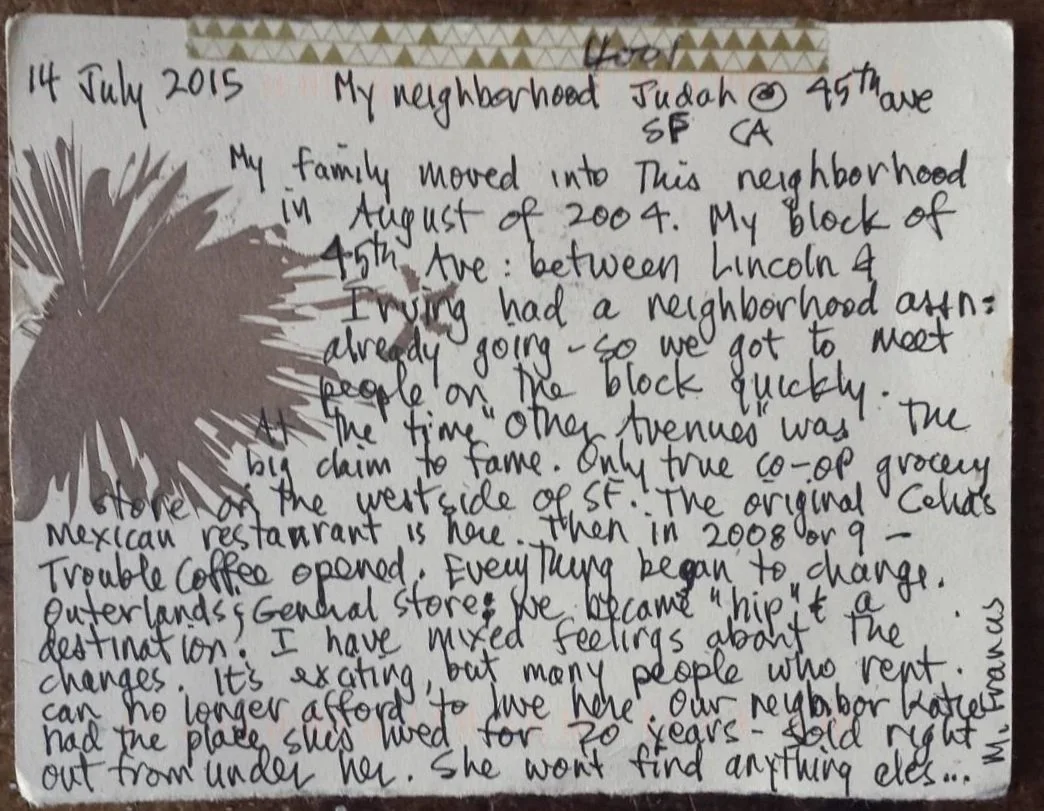 4001
14 July 2015 My neighborhood Judah @ 45th ave
SF CA
My family moved into This neighborhood
in August of 2004. My block of
45th Ave: between Lincoln &
Irving had a neighborhood assn:
already going - so we got to meet
people on the block quickly.
At the time "Other Avenues" was the
big claim to fame. Only true co-op grocery
store on the westside of SF. The original Celia's
Mexican restaurant is here. Then in 2008 or 9 -
Trouble Coffee opened. Everything began to change.
Outerlands; General Store; we became "hip" & a
destination. I have mixed feelings about the
changes. It's exciting, but many people who rent
can no longer afford to live here. Our neighbor Katie
had the place shes lived for 20 years - sold right
out from under her. She wont find anything eles...
M. Francis